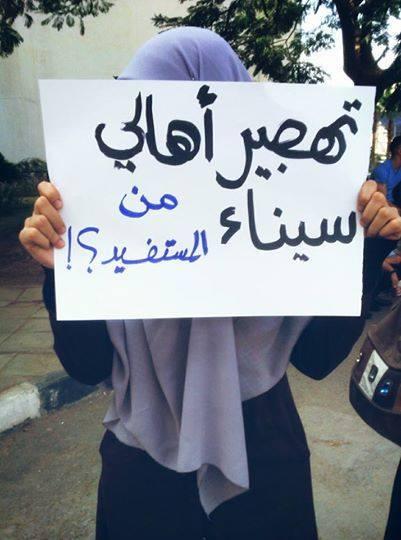 تهجير أهالي
سيناء
من
المستفيد؟!